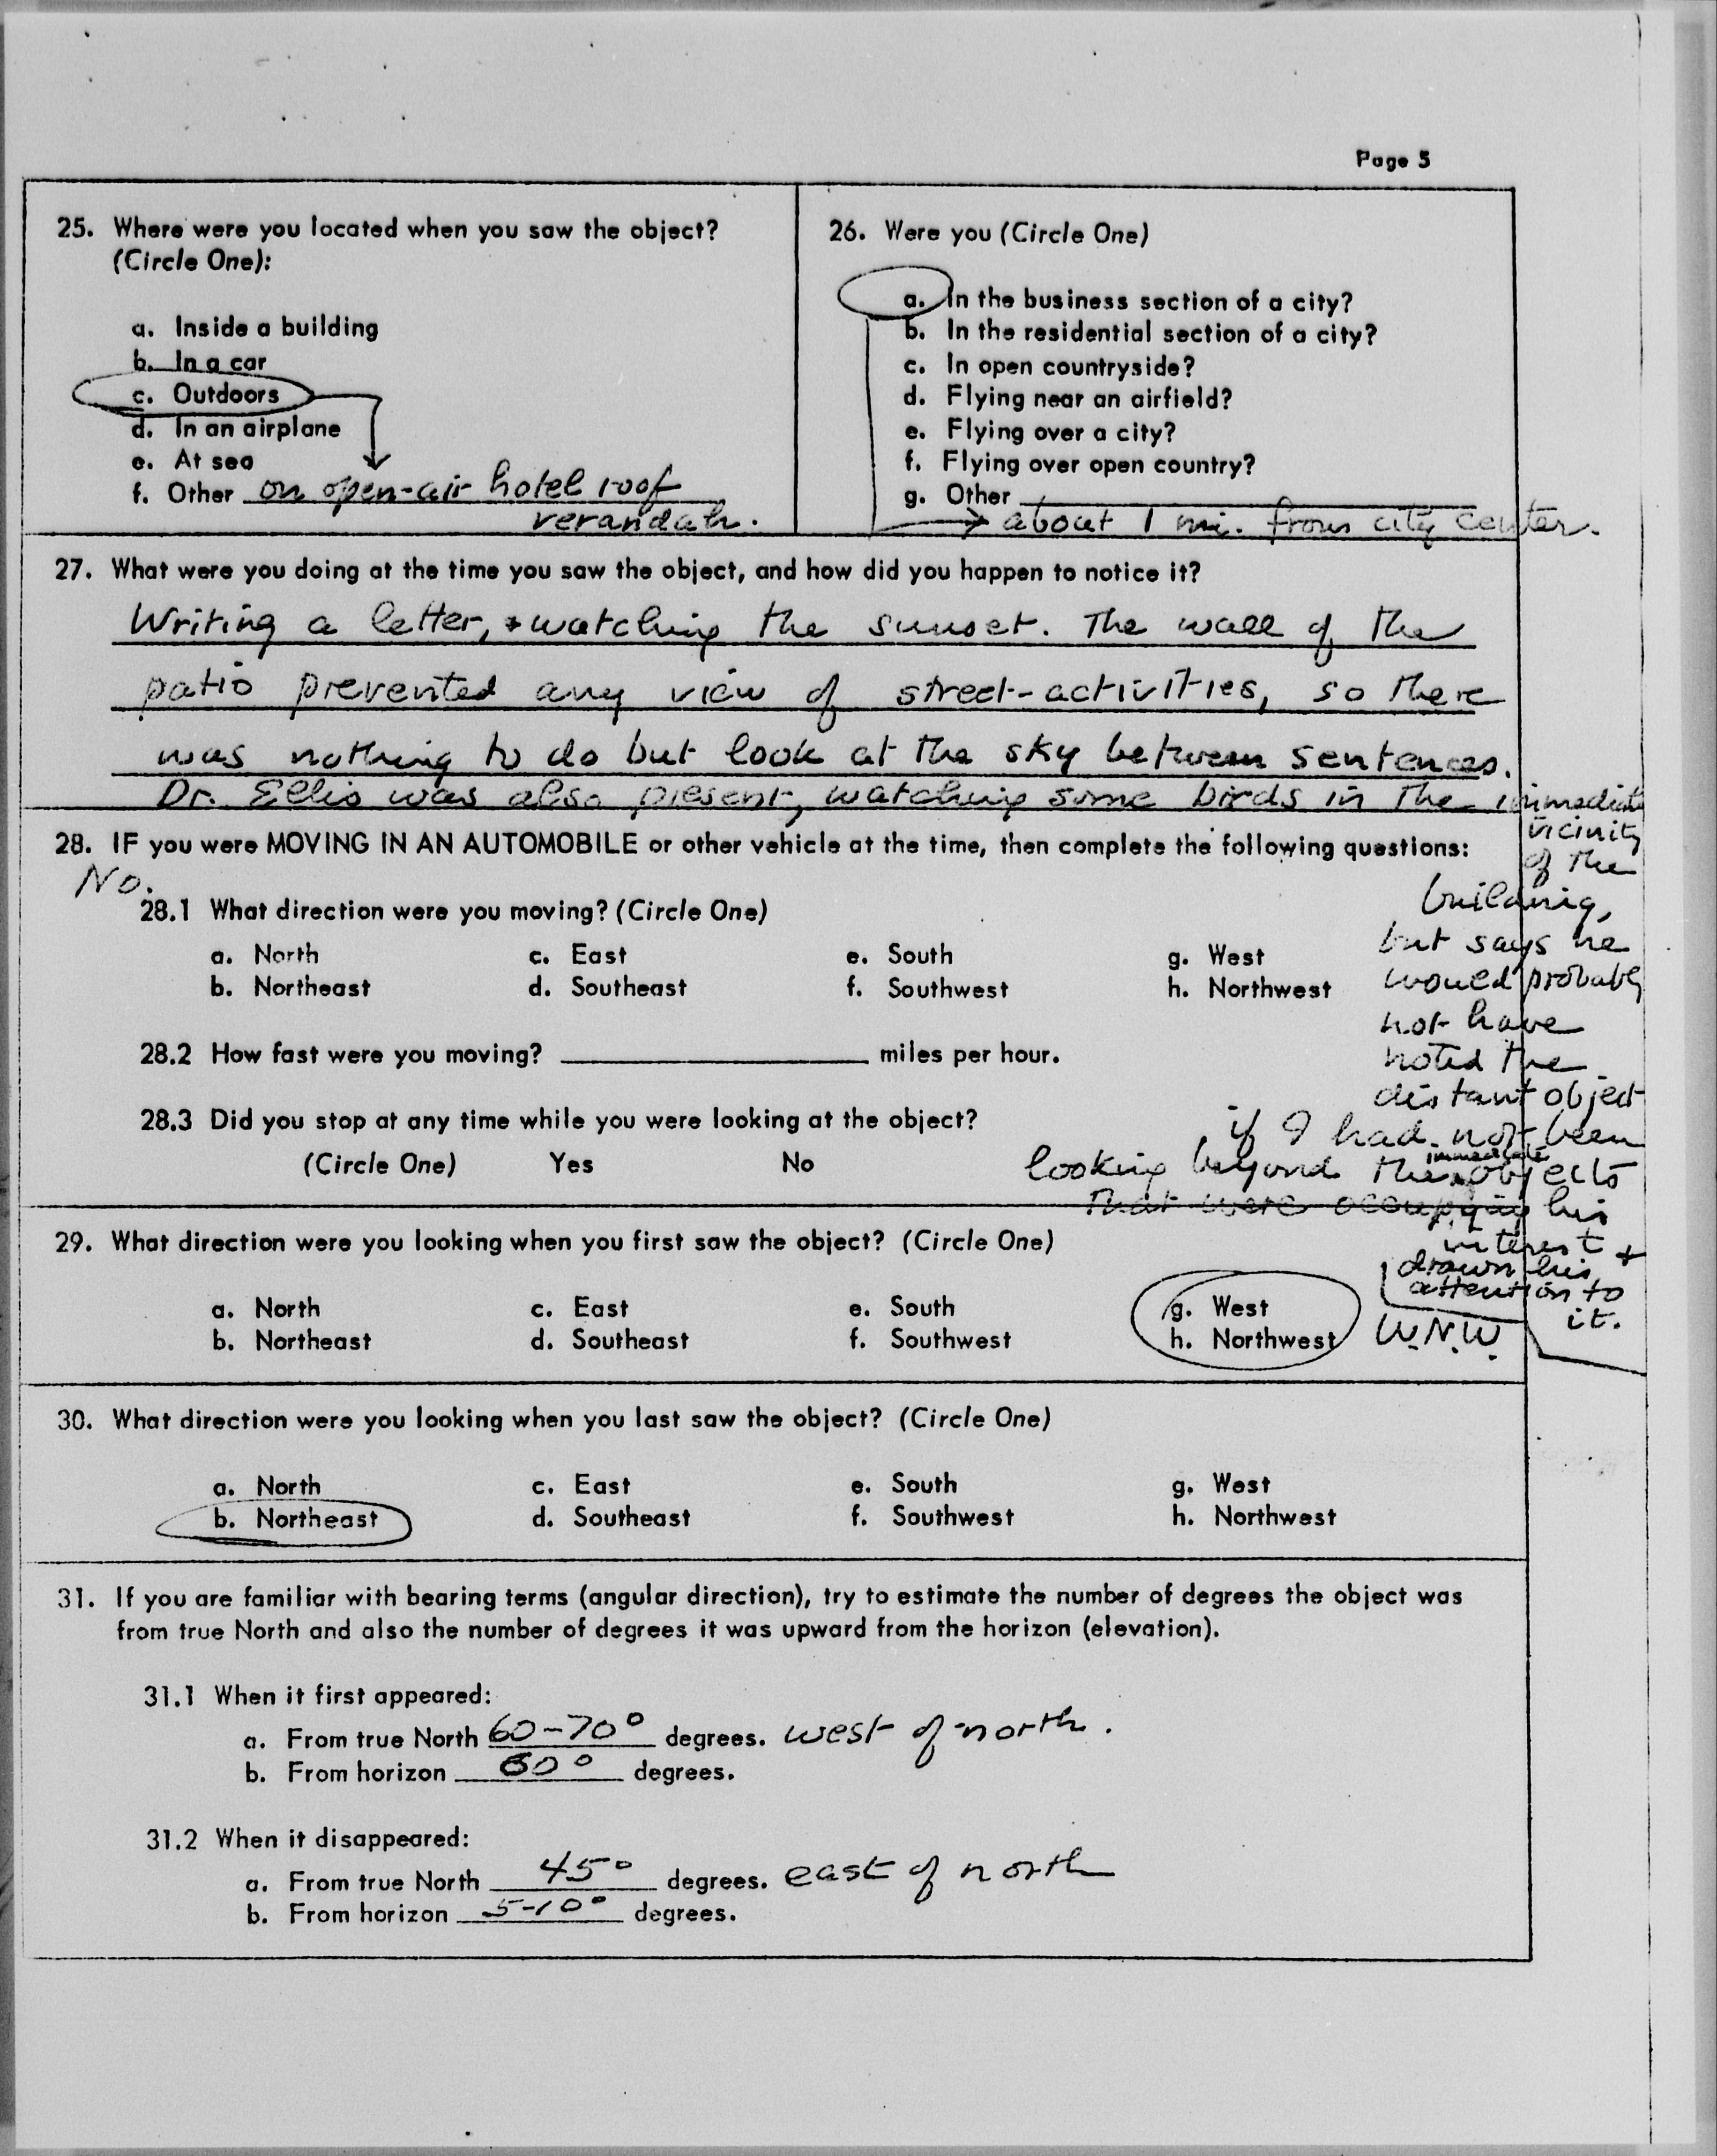 Page 5
25. Where were you located when you saw the object?
(Circle One):
a. Inside a building
b. In a car
c. Outdoors
d. In an airplane
e. At sea
f. Other on open-air hotel roof
verandah.
26. Were you (Circle One)
a. In the business section of a city?
b. In the residential section of a city?
c. In open countryside?
d. Flying near an airfield?
e. Flying over a city?
f. Flying over open country?
g. Other
about 1 mi. from city center.
27. What were you doing at the time you saw the object, and how did you happen to notice it?
Writing a letter, + watching the sunset. The wall of the
patio prevented any view of street-activities, so there
was nothing to do but look at the sky between sentences.
Dr. Ellis was also present, watching some birds in the immediate
vicinity
of the
building,
but says he
would probably
not have
noted the
distant object
if I had not been
looking beyond the immediate objects
that were occupying his
interest +
drawn his
attention to
it.
28. IF you were MOVING IN AN AUTOMOBILE or other vehicle at the time, then complete the following questions:
No.
28.1 What direction were you moving? (Circle One)
a. North c. East e. South g. West
b. Northeast d. Southeast f. Southwest h. Northwest
28.2 How fast were you moving? miles per hour.
28.3 Did you stop at any time while you were looking at the object?
(Circle One) Yes No
29. What direction were you looking when you first saw the object? (Circle One)
a. North c. East e. South g. West
b. Northeast d. Southeast f. Southwest h. Northwest W.N.W.
30. What direction were you looking when you last saw the object? (Circle One)
a. North c. East e. South g. West
b. Northeast d. Southeast f. Southwest h. Northwest
31. If you are familiar with bearing terms (angular direction), try to estimate the number of degrees the object was
from true North and also the number of degrees it was upward from the horizon (elevation).
31.1 When it first appeared:
a. From true North 60-70° degrees. west of north.
b. From horizon degrees.
31.2 When it disappeared:
a. From true North 45° degrees. east of north
b. From horizon 5-10° degrees.